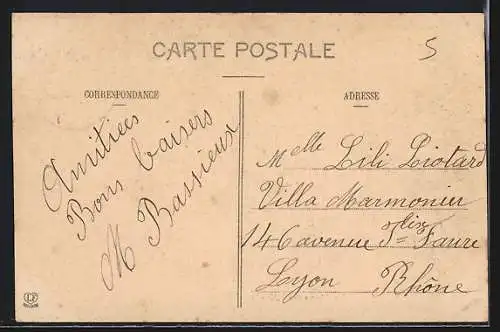 CARTE POSTALE
5
CORRESPONDANCE
ADRESSE
Amitiées
Bons baisers
M Bassieux
Melle Lili Liotard
Villa Marmonier
146 avenue Felix Faure
Lyon Rhône